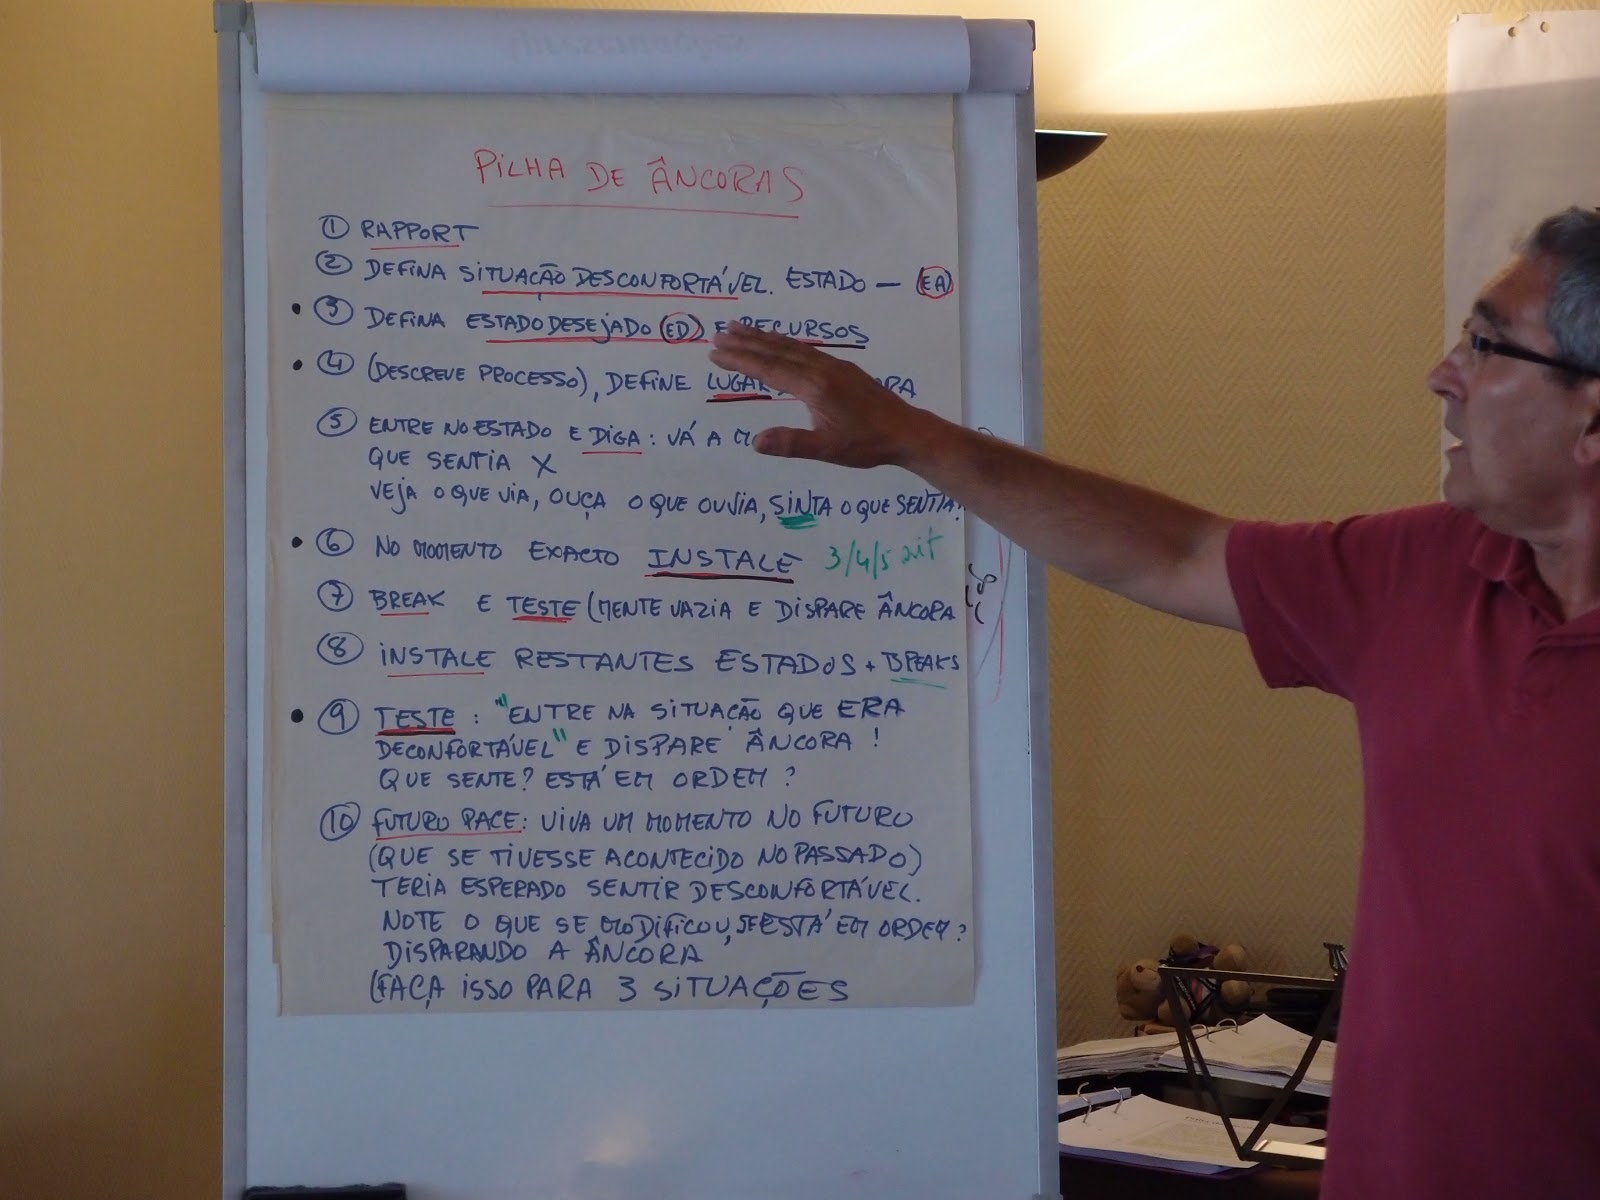 PILHA DE ÂNCORAS
① RAPPORT
② DEFINA SITUAÇÃO DESCONFORTÁVEL. ESTADO — (EA)
• ③ DEFINA ESTADO DESEJADO (ED) E RECURSOS
• ④ (DESCREVE PROCESSO), DEFINE LUGAR
⑤ ENTRE NO ESTADO E DIGA: VÁ A
QUE SENTIA X
VEJA O QUE VIA, OUÇA O QUE OUVIA, SINTA O QUE SENTIA!
• ⑥ NO MOMENTO EXACTO INSTALE 3/4/5
⑦ BREAK E TESTE (MENTE VAZIA E DISPARE ÂNCORA
⑧ INSTALE RESTANTES ESTADOS + BREAKS
• ⑨ TESTE: "ENTRE NA SITUAÇÃO QUE ERA
DECONFORTÁVEL" E DISPARE ÂNCORA!
QUE SENTE? ESTÁ EM ORDEM?
⑩ FUTURO PACE: VIVA UM MOMENTO NO FUTURO
(QUE SE TIVESSE ACONTECIDO NO PASSADO)
TERIA ESPERADO SENTIR DESCONFORTÁVEL.
NOTE O QUE SE MODIFICOU, SE ESTÁ EM ORDEM?
DISPARANDO A ÂNCORA
(FAÇA ISSO PARA 3 SITUAÇÕES